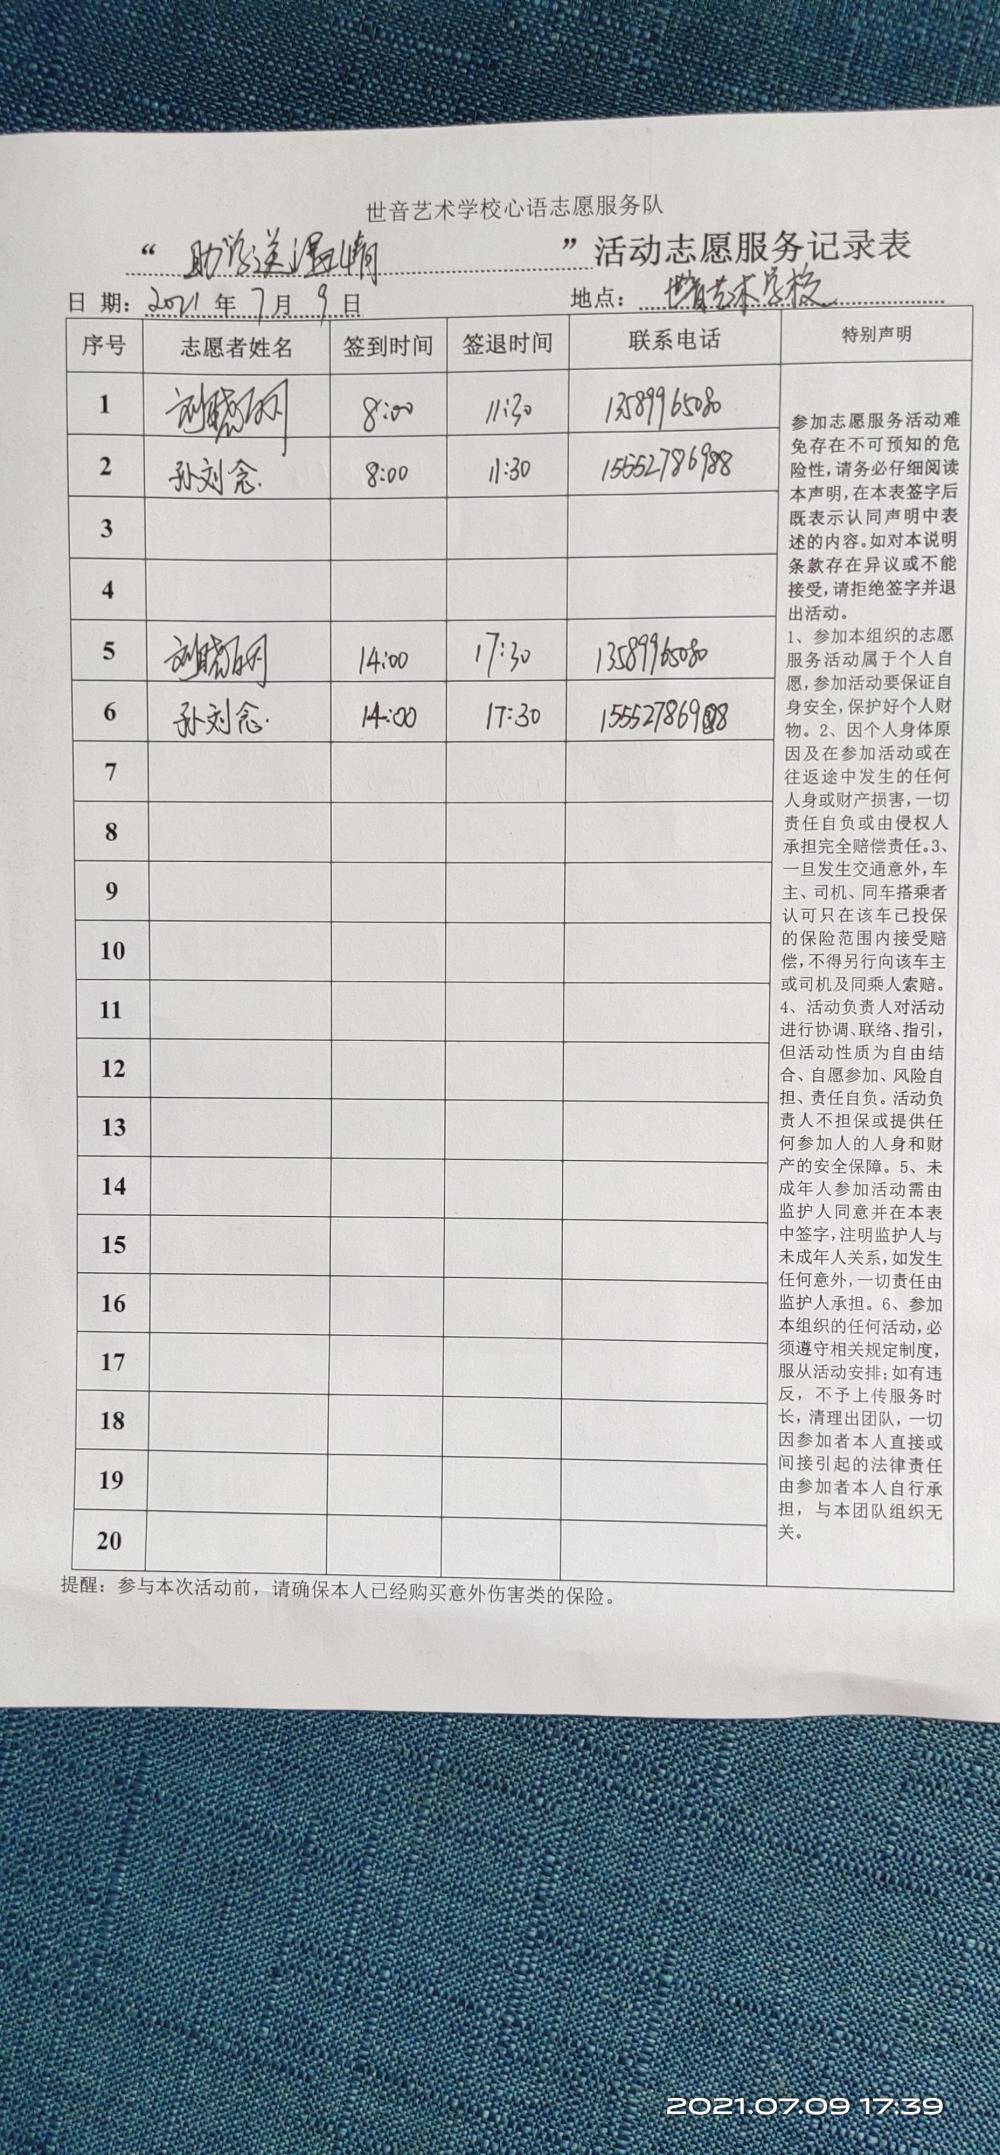 世音艺术学校心语志愿服务队
“助学送温情”活动志愿服务记录表
日 期：2021年7月9日 地点：世音艺术学校
序号 志愿者姓名 签到时间 签退时间 联系电话 特别声明
1 8:00 11:30 13589965080
2 孙刘念 8:00 11:30 15552786988
3
4
5 14:00 17:30 13589965080
6 孙刘念 14:00 17:30 15552786988
7
8
9
10
11
12
13
14
15
16
17
18
19
20
参加志愿服务活动难
免存在不可预知的危
险性,请务必仔细阅读
本声明,在本表签字后
既表示认同声明中表
述的内容。如对本说明
条款存在异议或不能
接受,请拒绝签字并退
出活动。
1、参加本组织的志愿
服务活动属于个人自
愿,参加活动要保证自
身安全,保护好个人财
物。2、因个人身体原
因及在参加活动或在
往返途中发生的任何
人身或财产损害,一切
责任自负或由侵权人
承担完全赔偿责任。3、
一旦发生交通意外,车
主、司机、同车搭乘者
认可只在该车已投保
的保险范围内接受赔
偿,不得另行向该车主
或司机及同乘人索赔。
4、活动负责人对活动
进行协调、联络、指引,
但活动性质为自由结
合、自愿参加、风险自
担、责任自负。活动负
责人不担保或提供任
何参加人的人身和财
产的安全保障。5、未
成年人参加活动需由
监护人同意并在本表
中签字,注明监护人与
未成年人关系,如发生
任何意外,一切责任由
监护人承担。6、参加
本组织的任何活动,必
须遵守相关规定制度,
服从活动安排;如有违
反，不予上传服务时
长，清理出团队，一切
因参加者本人直接或
间接引起的法律责任
由参加者本人自行承
担，与本团队组织无
关。
提醒：参与本次活动前，请确保本人已经购买意外伤害类的保险。
2021.07.09 17:39